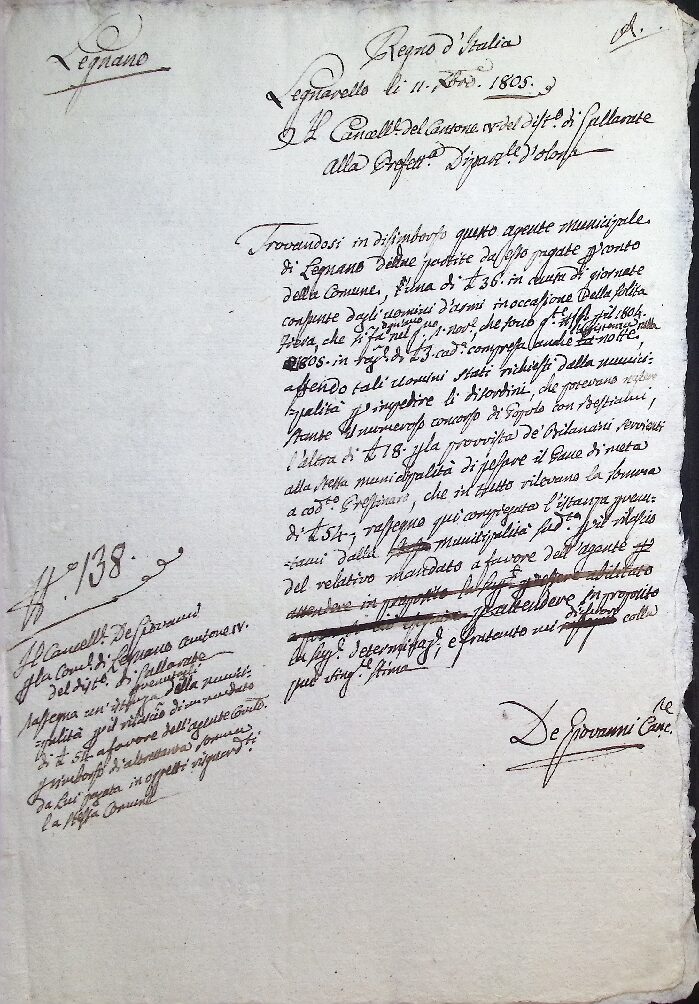 Legnano
Regno d'Italia
Legnarello li 11. 9bre 1805.
Il Cancell.e del Cantone IV. del dist.o di Gallarate
alla Prefett.a Dipart.le d'Olona
Trovandosi in disimborso questo agente municipale
di Legnano delle partite da esso pagate per conto
della Comune, l'una di £ 36. in causa di giornate
consunte dagli uomini d'armi in occasione della solita
Fiera, che si fa nel giorno p.o nov.e, che sono
1805. in rag.e di £ 3. cad.o compresa anche la notte,
assendo tali uomini stati richiesti dalla munici-
palità per impedire li disordini, che potevano
stante il numeroso concorso di Popolo con Bestiami,
l'altra di £ 18. per la provvista de' Bilancini servienti
alla stessa municipalità di pessare il Pane di meta
a cod.to Prestinaro, che in tutto rilevano la somma
di £ 54., rassegno qui compiegata l'istanza presen-
tami dalla municipalità sud.ta per il rilascio
del relativo mandato a favore dell'agente
attendere in proposito
per attendere in proposito
la sup.e determinaz.e, e frattanto mi colla
più sing.re stima
De Giovanni Canc.re
N.o 138.
Il Cancell.e De Giovanni
per la Com.e di Legnano cantone IV.
del dist.o di Gallarate
rassegna un'istanza della munici-
palità per il rilascio di mandato
di £ 54 a favore dell'agente Com.le
per rimborso d'altrettanta somma
da lui pagata in oggetti riguard.ti
la stessa Comune